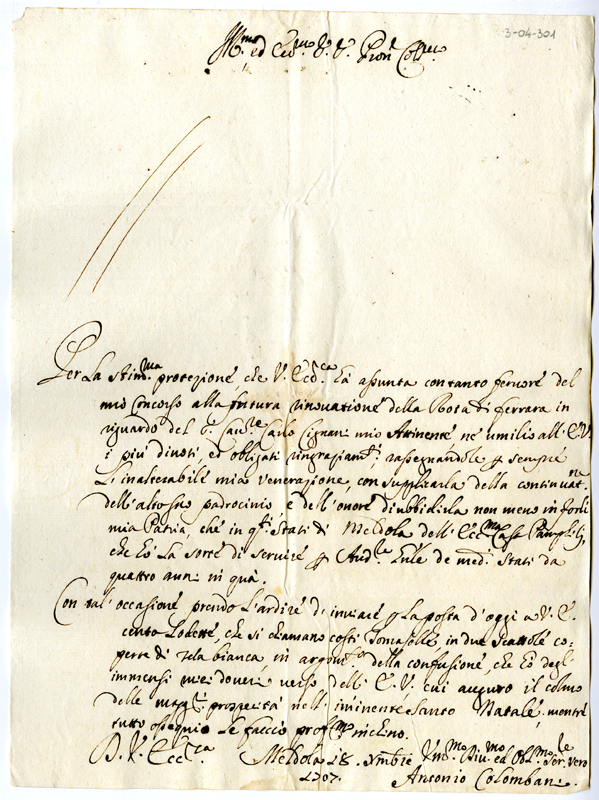 3-04-301
Ill.mo ed Ecc.mo S.r S.r Pron Col.mo
Per La stim.ma protezione che V. Ecc.ca hà assunta con tanto fervore del
mio Concorso alla futura rinovatione della Rota di ferrara in
riguardo del S. Cau.re Carlo Cignani mio Attinente, ne umilio all' E.V.
i più diuoti, ed obligati ringraziam.ti, rassegnandole p sempre
L'inalterabile mia venerazione, con supplicarla della continuat.ne
dell'alto suo padrocinio, e dell'onore d'ubbidirla non meno in Forlì
mia Patria, che in q.ti Stati di Meldola dell' Ecc.ma Casa Pampilij,
che hò La sorte di seruire p Aud.re de med.i Stati da
quattro anni in quà.
Con tal' occasione prendo L'ardire d'inuiare p La posta d'oggi a V. E.
cento Lobette, che si chiamano costì Tomaselle in due Scattole co,
perte di tela bianca, in argom.to della confusione, che hò degl'
immensi miei doueri verso dell' E. V. cui auguro il colmo
delle magg.ri prosperità nell' iminente Santo Natale, mentre
tutto ossequio Le faccio prof.ma inchino.
D. V. Ecc.ca Meldola 18. Xmbre Um.mo Diu.mo ed Obl.mo Ser.re vero
1707. Antonio Colombani.